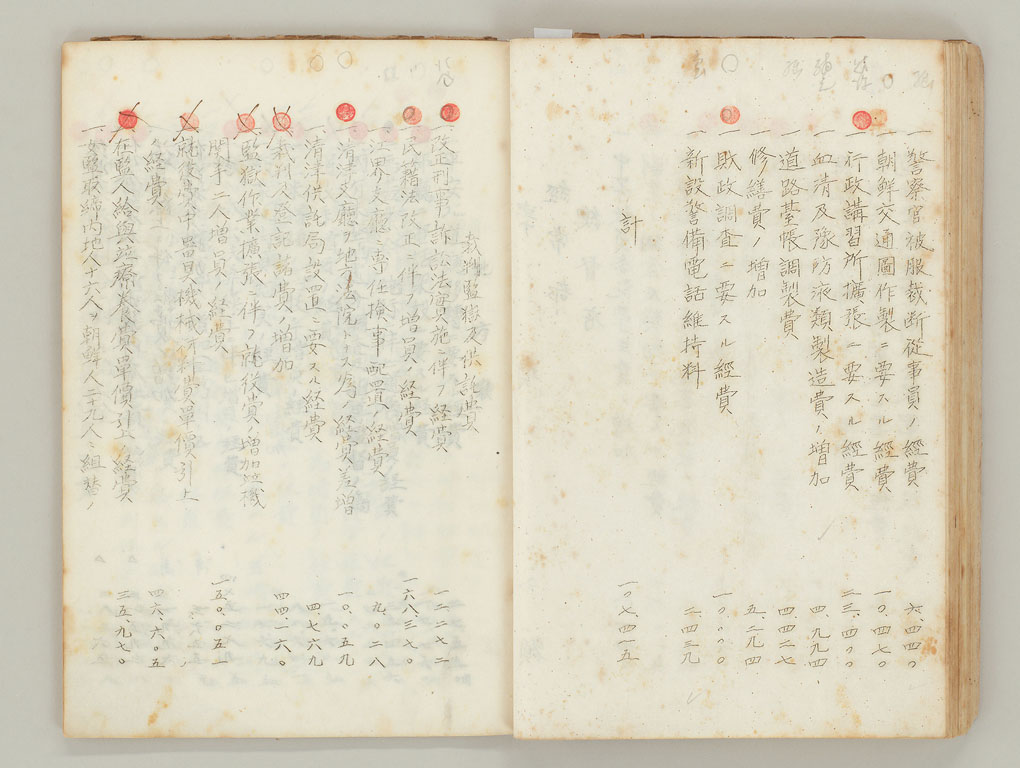 一 警察官被服裁断従事員ノ經費 六、四四〇
一 朝鮮交通圖作製ニ要スル經費 一〇、四七〇
一 行政講習所擴張ニ要スル經費 二三、四〇〇
一 血清及豫防液類製造費ノ増加 四、九九四
一 道路臺帳調製費 四四二七
一 修繕費ノ増加 五、二九四
一 財政調査ニ要スル經費 一〇〇〇〇
一 新設警備電話維持料 二、四三九
計 一〇七四一五
裁判監獄及供託費
一 改正刑事訴訟法實施ニ伴フ經費 一二二七二
一 民籍法改正ニ伴フ増員ノ經費 一六八三七〇
一 江界支廳ニ専任検事配置ノ經費 九、〇二八
一 清津支廳ヲ地方法院トスル為ノ經費差増 一〇、〇五九
一 清津供託局設置ニ要スル経費 四、七六九
一 裁判及登記諸費ノ増加 四四一六〇
一 監獄作業擴張ニ伴フ就役費ノ増加竝機
関手二人増員ノ経費 一五〇、〇五一
一 就役費中器具機械
經費 四六、六〇五
一 在監人給與竝療養費單價引上ノ經費 三五、九七〇
一 女監取締内地人十六人ヲ朝鮮人二十九人ニ組替ノ